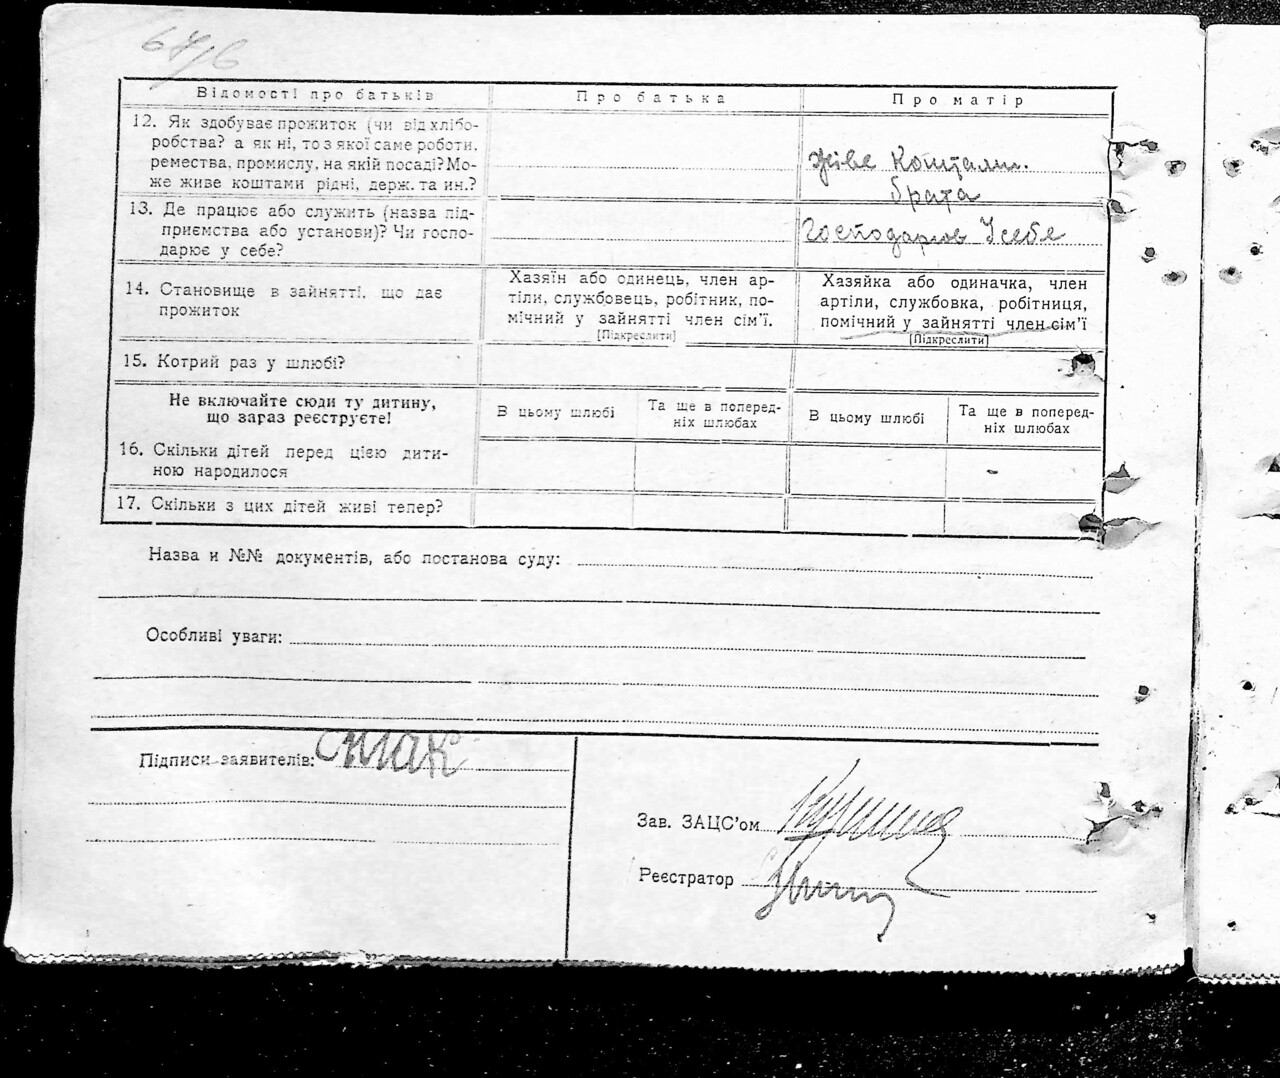 Відомості про батьків
Про батька
Про матір
12. Як здобуває прожиток (чи від хлібо-
робства? а як ні, то з якої саме роботи,
ремества, промислу, на якій посаді? Мо-
же живе коштами рідні, держ. та ин.?
живе Коштами
брата
13. Де працює або служить (назва під-
приємства або установи)? Чи госпо-
дарює у себе?
Господарює У себе
14. Становище в зайнятті, що дає
прожиток
Хазяїн або одинець, член ар-
тіли, службовець, робітник, по-
мічний у зайнятті член сім'ї.
[Підкреслити]
Хазяйка або одиначка, член
артіли, службовка, робітниця,
помічний у зайнятті член сім'ї
[Підкреслити]
15. Котрий раз у шлюбі?
Не включайте сюди ту дитину,
що зараз реєструєте!
В цьому шлюбі
Та ще в поперед-
ніх шлюбах
В цьому шлюбі
Та ще в поперед-
ніх шлюбах
16. Скільки дітей перед цією дити-
ною народилося
-
17. Скільки з цих дітей живі тепер?
Назва и №№ документів, або постанова суду:
Особливі уваги:
Підписи заявителів:
Зав. ЗАЦС'ом
Реєстратор